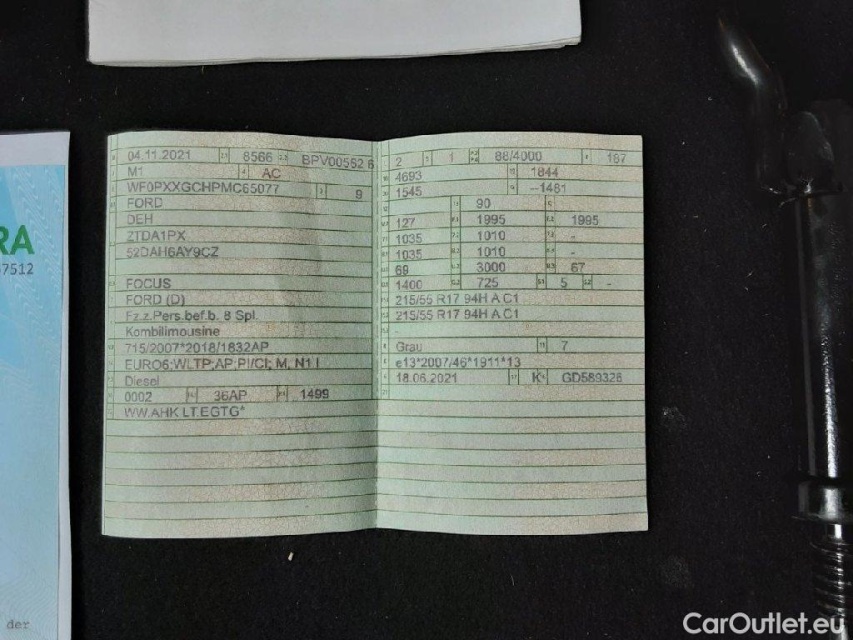 04.11.2021 8566 BPV00562 6
M1 AC
WF0PXXGCHPMC65077 9
FORD
DEH
ZTDA1PX
52DAH6AY9CZ
FOCUS
FORD (D)
Fz.z.Pers.bef.b. 8 Spl.
Kombilimousine
715/2007*2018/1832AP
EURO6;WLTP;AP;PI/CI; M, N1 I
Diesel
0002 36AP 1499
WW.AHK LT.EGTG*
2 1 88/4000 187
4693 1844
1545 –1481
90
127 1995 1995
1035 1010 -
1035 1010 -
69 3000 67
1400 725 5 -
215/55 R17 94H A C1
215/55 R17 94H A C1
-
Grau 7
e13*2007/46*1911*13
18.06.2021 K GD589326
RA
7512
der
CarOutlet.eu